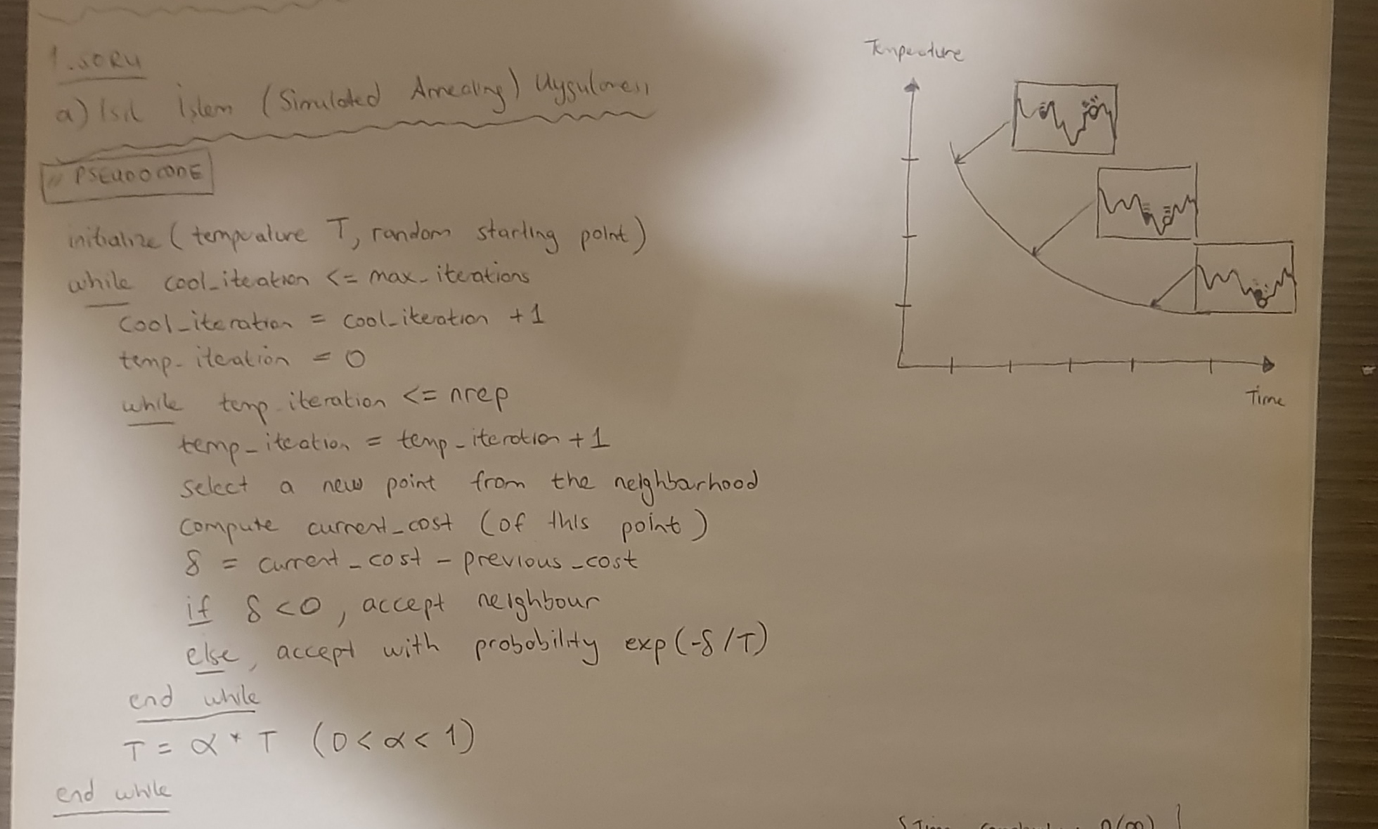 1.SORU
a) Isıl İşlem (Simulated Annealing) Uygulaması
// PSEUDOCODE
initialize (temperature T, random starting point)
while cool_iteration <= max_iterations
cool_iteration = cool_iteration + 1
temp_iteration = 0
while temp_iteration <= nrep
temp_iteration = temp_iteration + 1
select a new point from the neighborhood
compute current_cost (of this point)
δ = current_cost - previous_cost
if δ < 0, accept neighbour
else, accept with probability exp(-δ/T)
end while
T = α * T (0 < α < 1)
end while
Temperature
Time